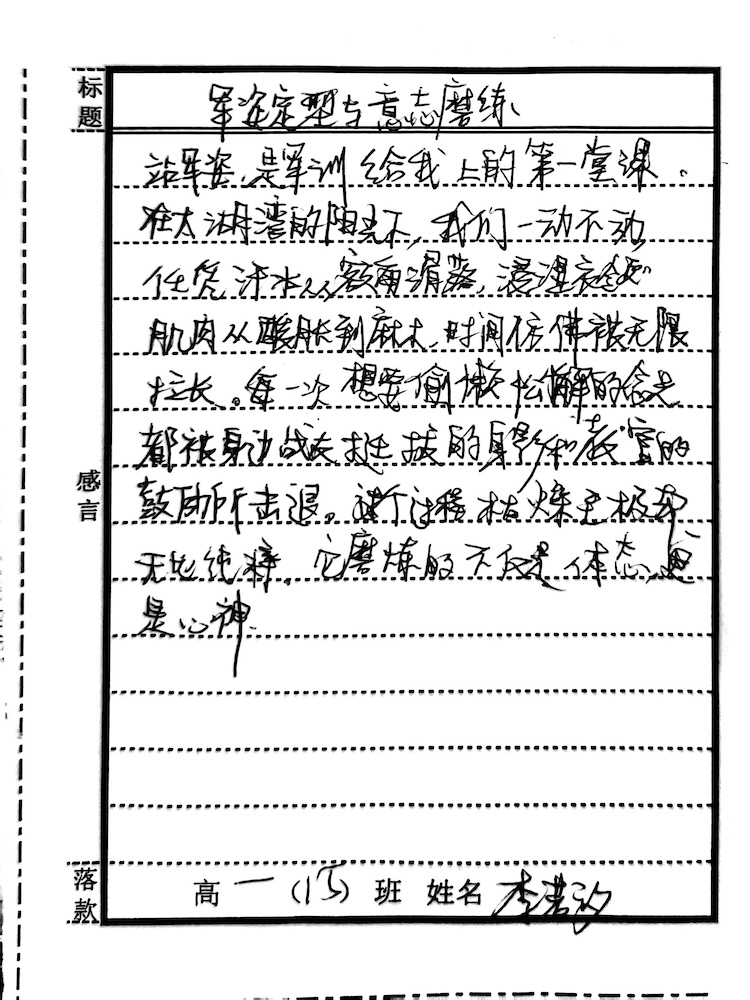 标题
军姿定型与意志磨练
站军姿,是军训给我上的第一堂课。
在太湖湾的阳光下,我们一动不动
任凭汗水从额角滑落,浸湿衣
肌肉从酸胀到麻木,时间仿佛被无限
拉长。每一次想要偷懒松懈的念头
都被身边战友挺拔的身影和教官的
鼓励所击退。这个过程枯燥至极却
无比纯粹,它磨炼的不仅是体态,更
是心神.
感言
落款
高一(15)班 姓名 李